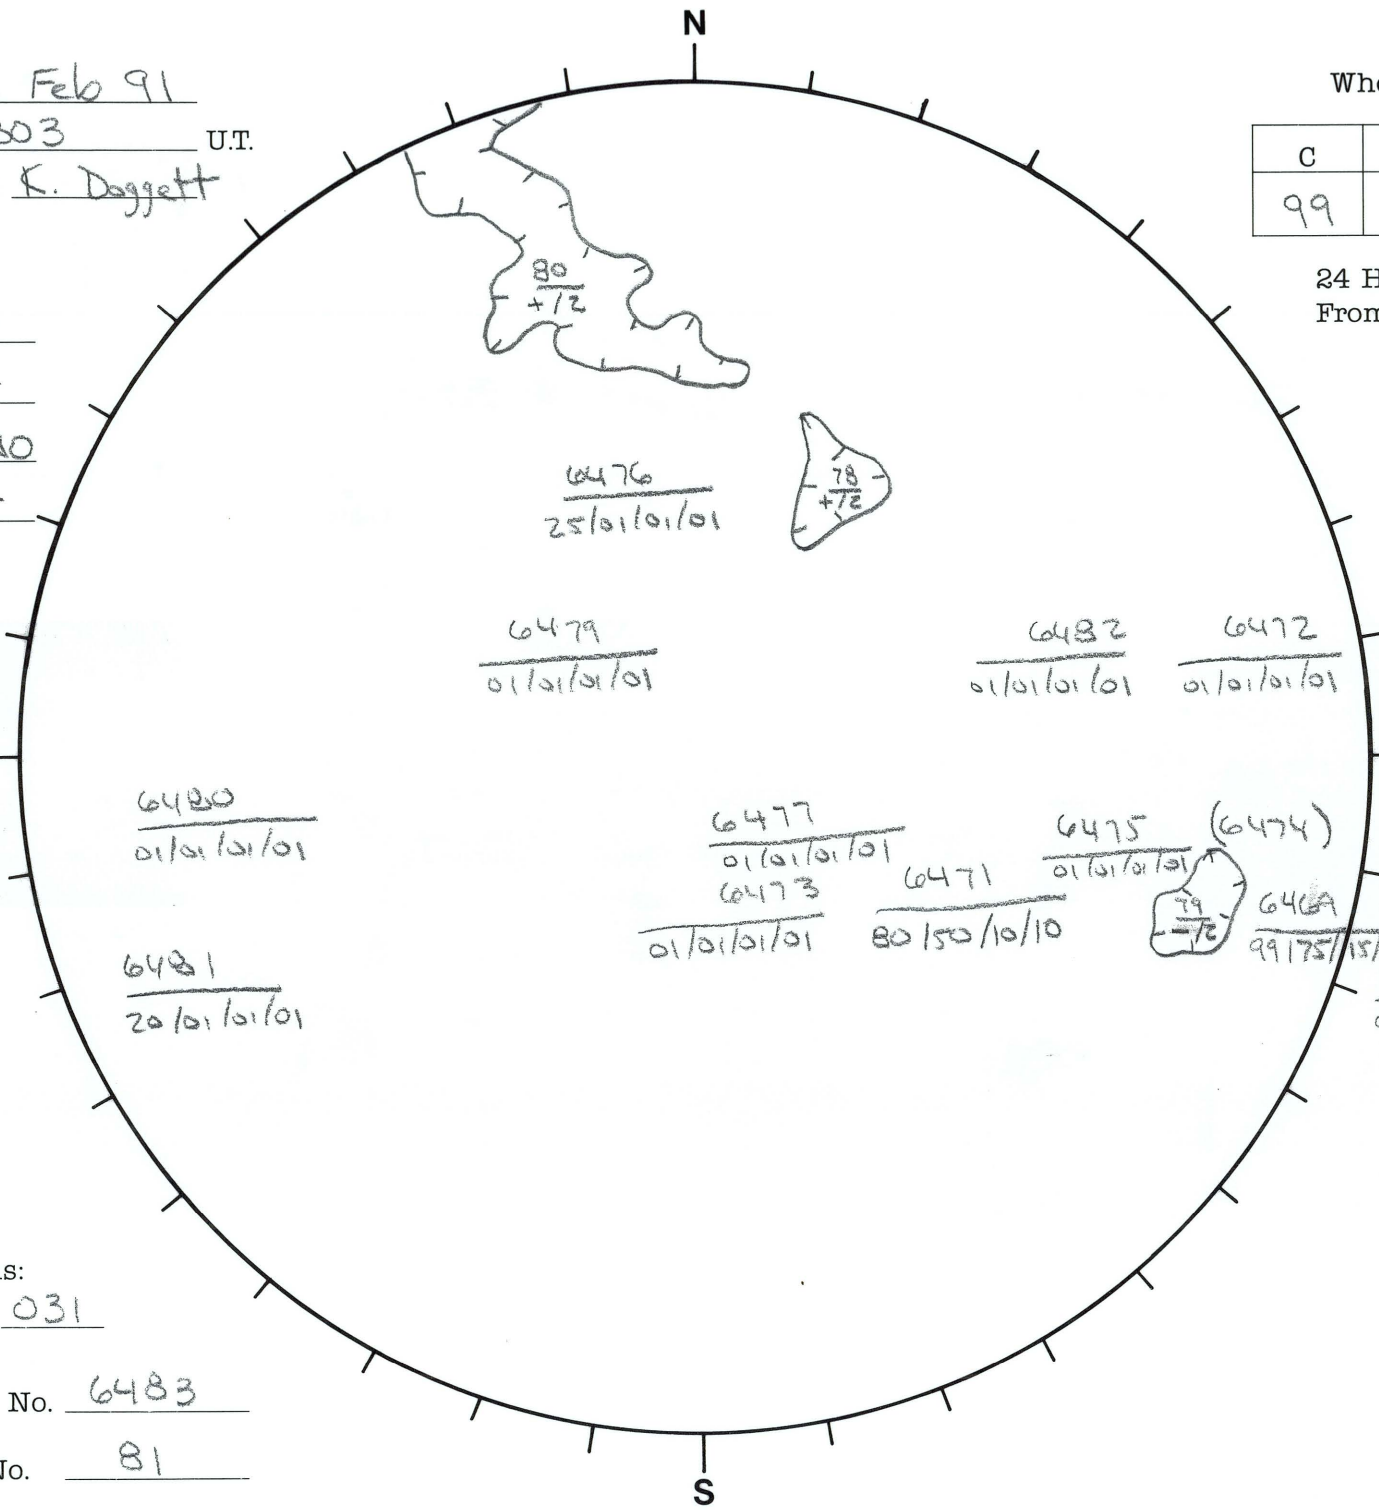 N
Feb 91
303 U.T.
K. Doggett
Who
C
99
24 H
From
80
+/2
6476
25/01/01/01
78
+/2
6479
01/01/01/01
6482
01/01/01/01
6472
01/01/01/01
6480
01/01/01/01
6477
01/01/01/01
6475
01/01/01/01
(6474)
6473
01/01/01/01
6471
80/50/10/10
79
-/2
6469
99/75/15/
6481
20/01/01/01
s:
031
No. 6483
No. 81
S